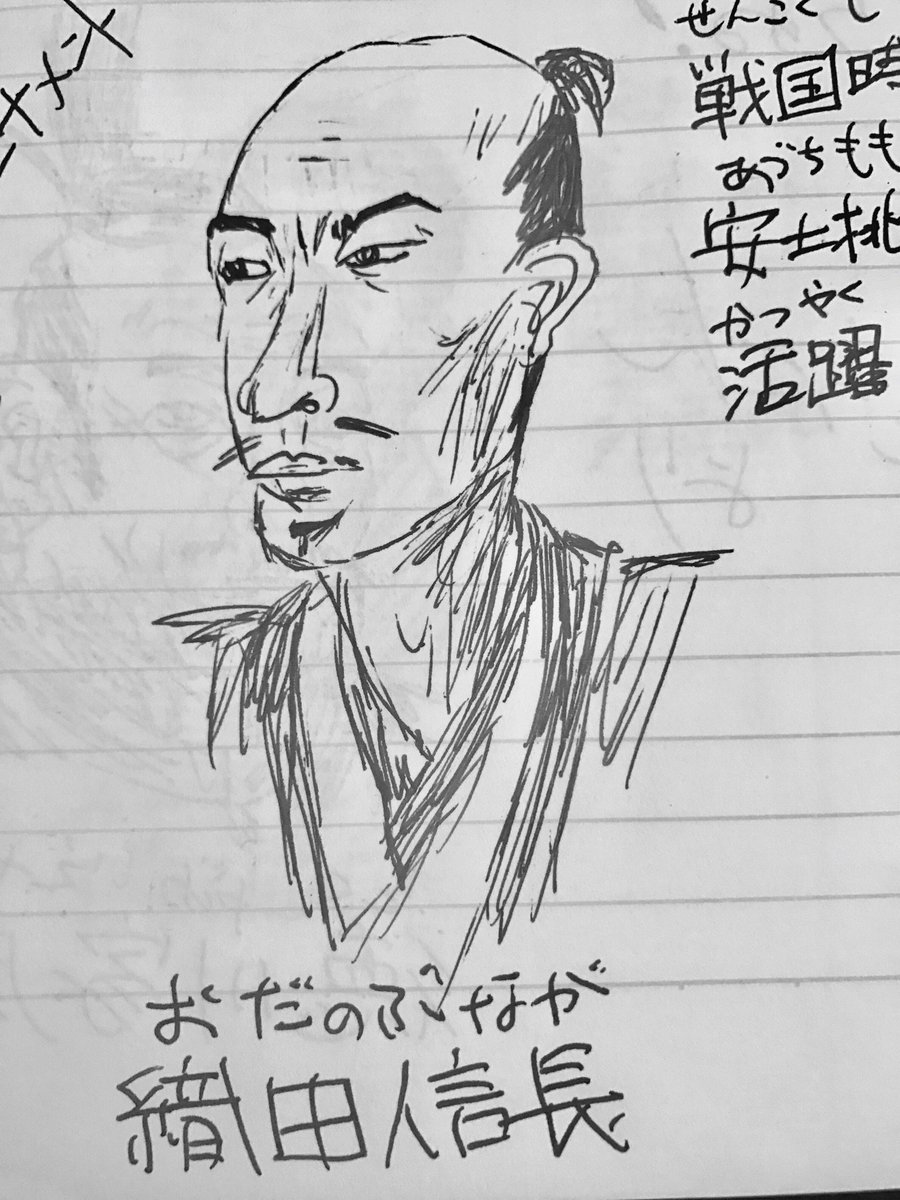 せんごくじ
戦国時
あづちもも
安土桃
かつやく
活躍
おだのぶなが
織田信長